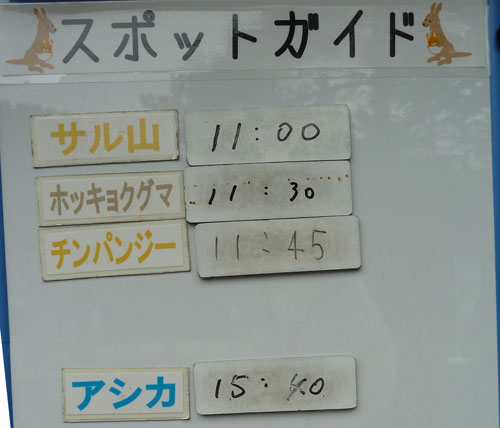 スポットガイド
サル山 11:00
ホッキョクグマ 11:30
チンパンジー 11:45
アシカ 15:40